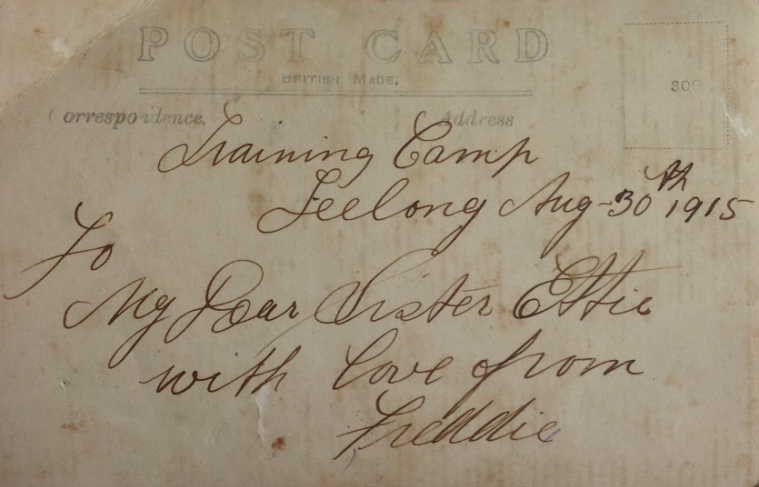 POST CARD
BRITISH MADE.
Correspondence. Address
Training Camp
Geelong Aug-30th 1915
To
My Dear Sister Ettie
with love from
Freddie